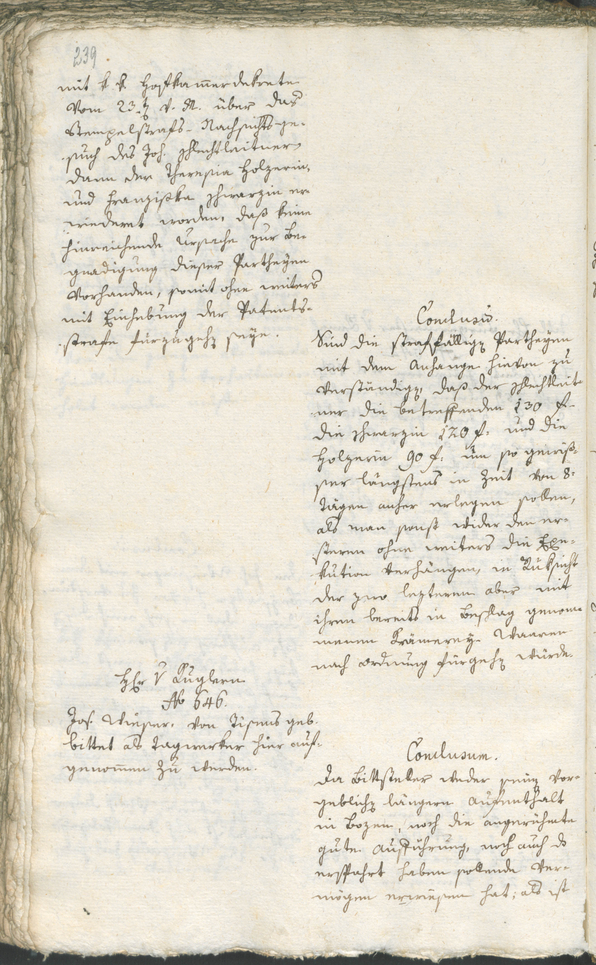 239.
mit k. k. Hofkammerdekrete
vom 23.ten v. M. über das
Stempelstrafs-Nachsichtsge-
such des Joh. Schlechtleitner
dann der Theresia Holzerin,
und Franziska Schwarzin er-
wiedert worden, daß keine
hinreichende Ursache zur Be-
gnadigung dieser Partheyen
vorhanden, somit ohne weiters
mit Einhebung der Patents-
strafe fürzugehen seye.
Conclusum.
Sind die straffälligen Partheyen
mit dem Anhange hievon zu
verständigen, daß der Schlechtleit-
ner die betreffenden 130 f.
die Schwarzin 120 f. und die
Holzerin 90 f. um so gewis-
ser längstens in Zeit von 8
Tägen anher erlegen sollen,
als man sonst wider den er-
steren ohne weiters die Exe-
kution verhängen, in Rüksicht
der zwo lezteren aber mit
ihren bereits in Beschlag genom-
menen Krämerey-Waaren
nach Ordnung fürgehen würde.
Hr. v. Kugler.
No 646.
Jos. Wieser, von Tisens geb.
bittet als Tagwerker hier auf-
genommen zu werden.
Conclusum.
Da Bittsteller weder seinen vor-
geblichen längern Aufenthalt
in Bozen, noch die angerühmte
gute Aufführung, noch auch das
ersparrt haben sollende Ver-
mögen erwiesen hat; als ist